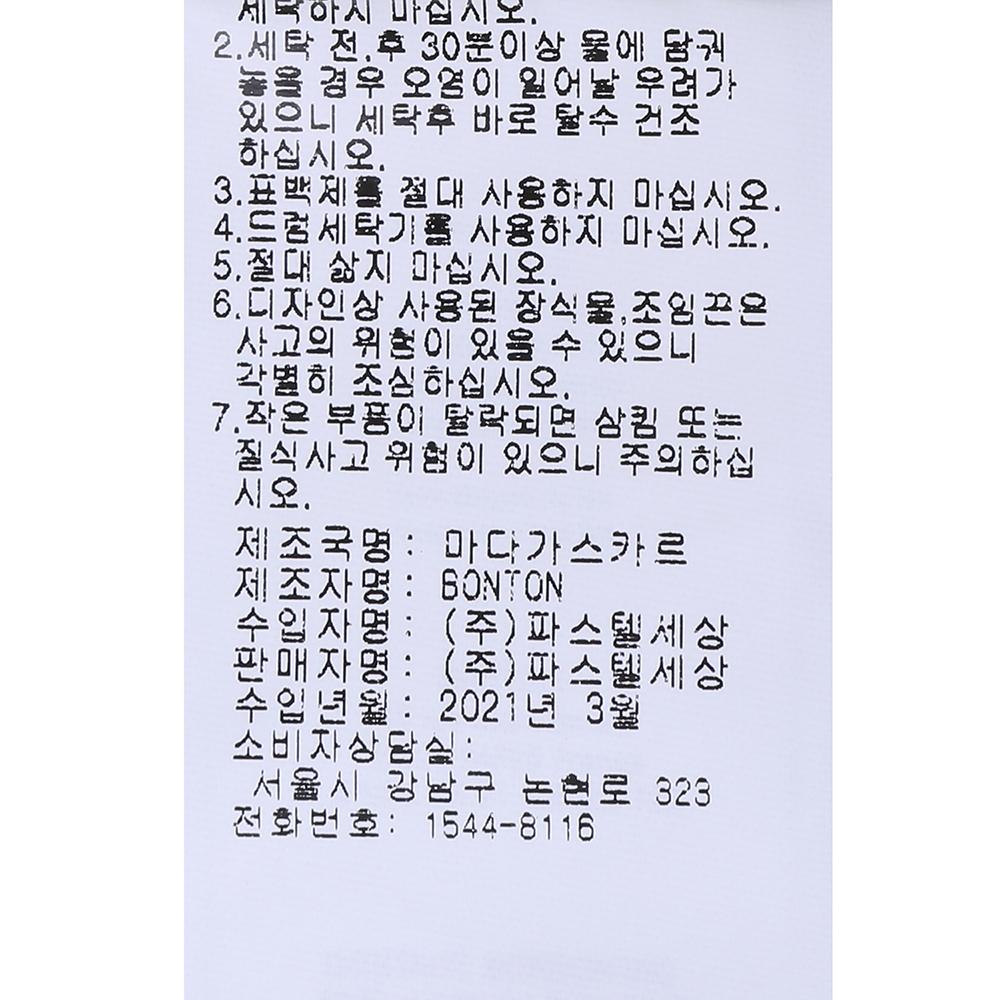 세탁하지 마십시오.
2.세탁 전.후 30분이상 물에 담궈
놓을 경우 오염이 일어날 우려가
있으니 세탁후 바로 탈수 건조
하십시오.
3.표백제를 절대 사용하지 마십시오.
4.드럼세탁기를 사용하지 마십시오.
5.절대 삶지 마십시오.
6.디자인상 사용된 장식물,조임끈은
사고의 위험이 있을 수 있으니
각별히 조심하십시오.
7.작은 부품이 탈락되면 삼킴 또는
질식사고 위험이 있으니 주의하십
시오.
제조국명: 마다가스카르
제조자명: BONTON
수입자명: (주)파스텔세상
판매자명: (주)파스텔세상
수입년월: 2021년 3월
소비자상담실:
서울시 강남구 논현로 323
전화번호: 1544-8116